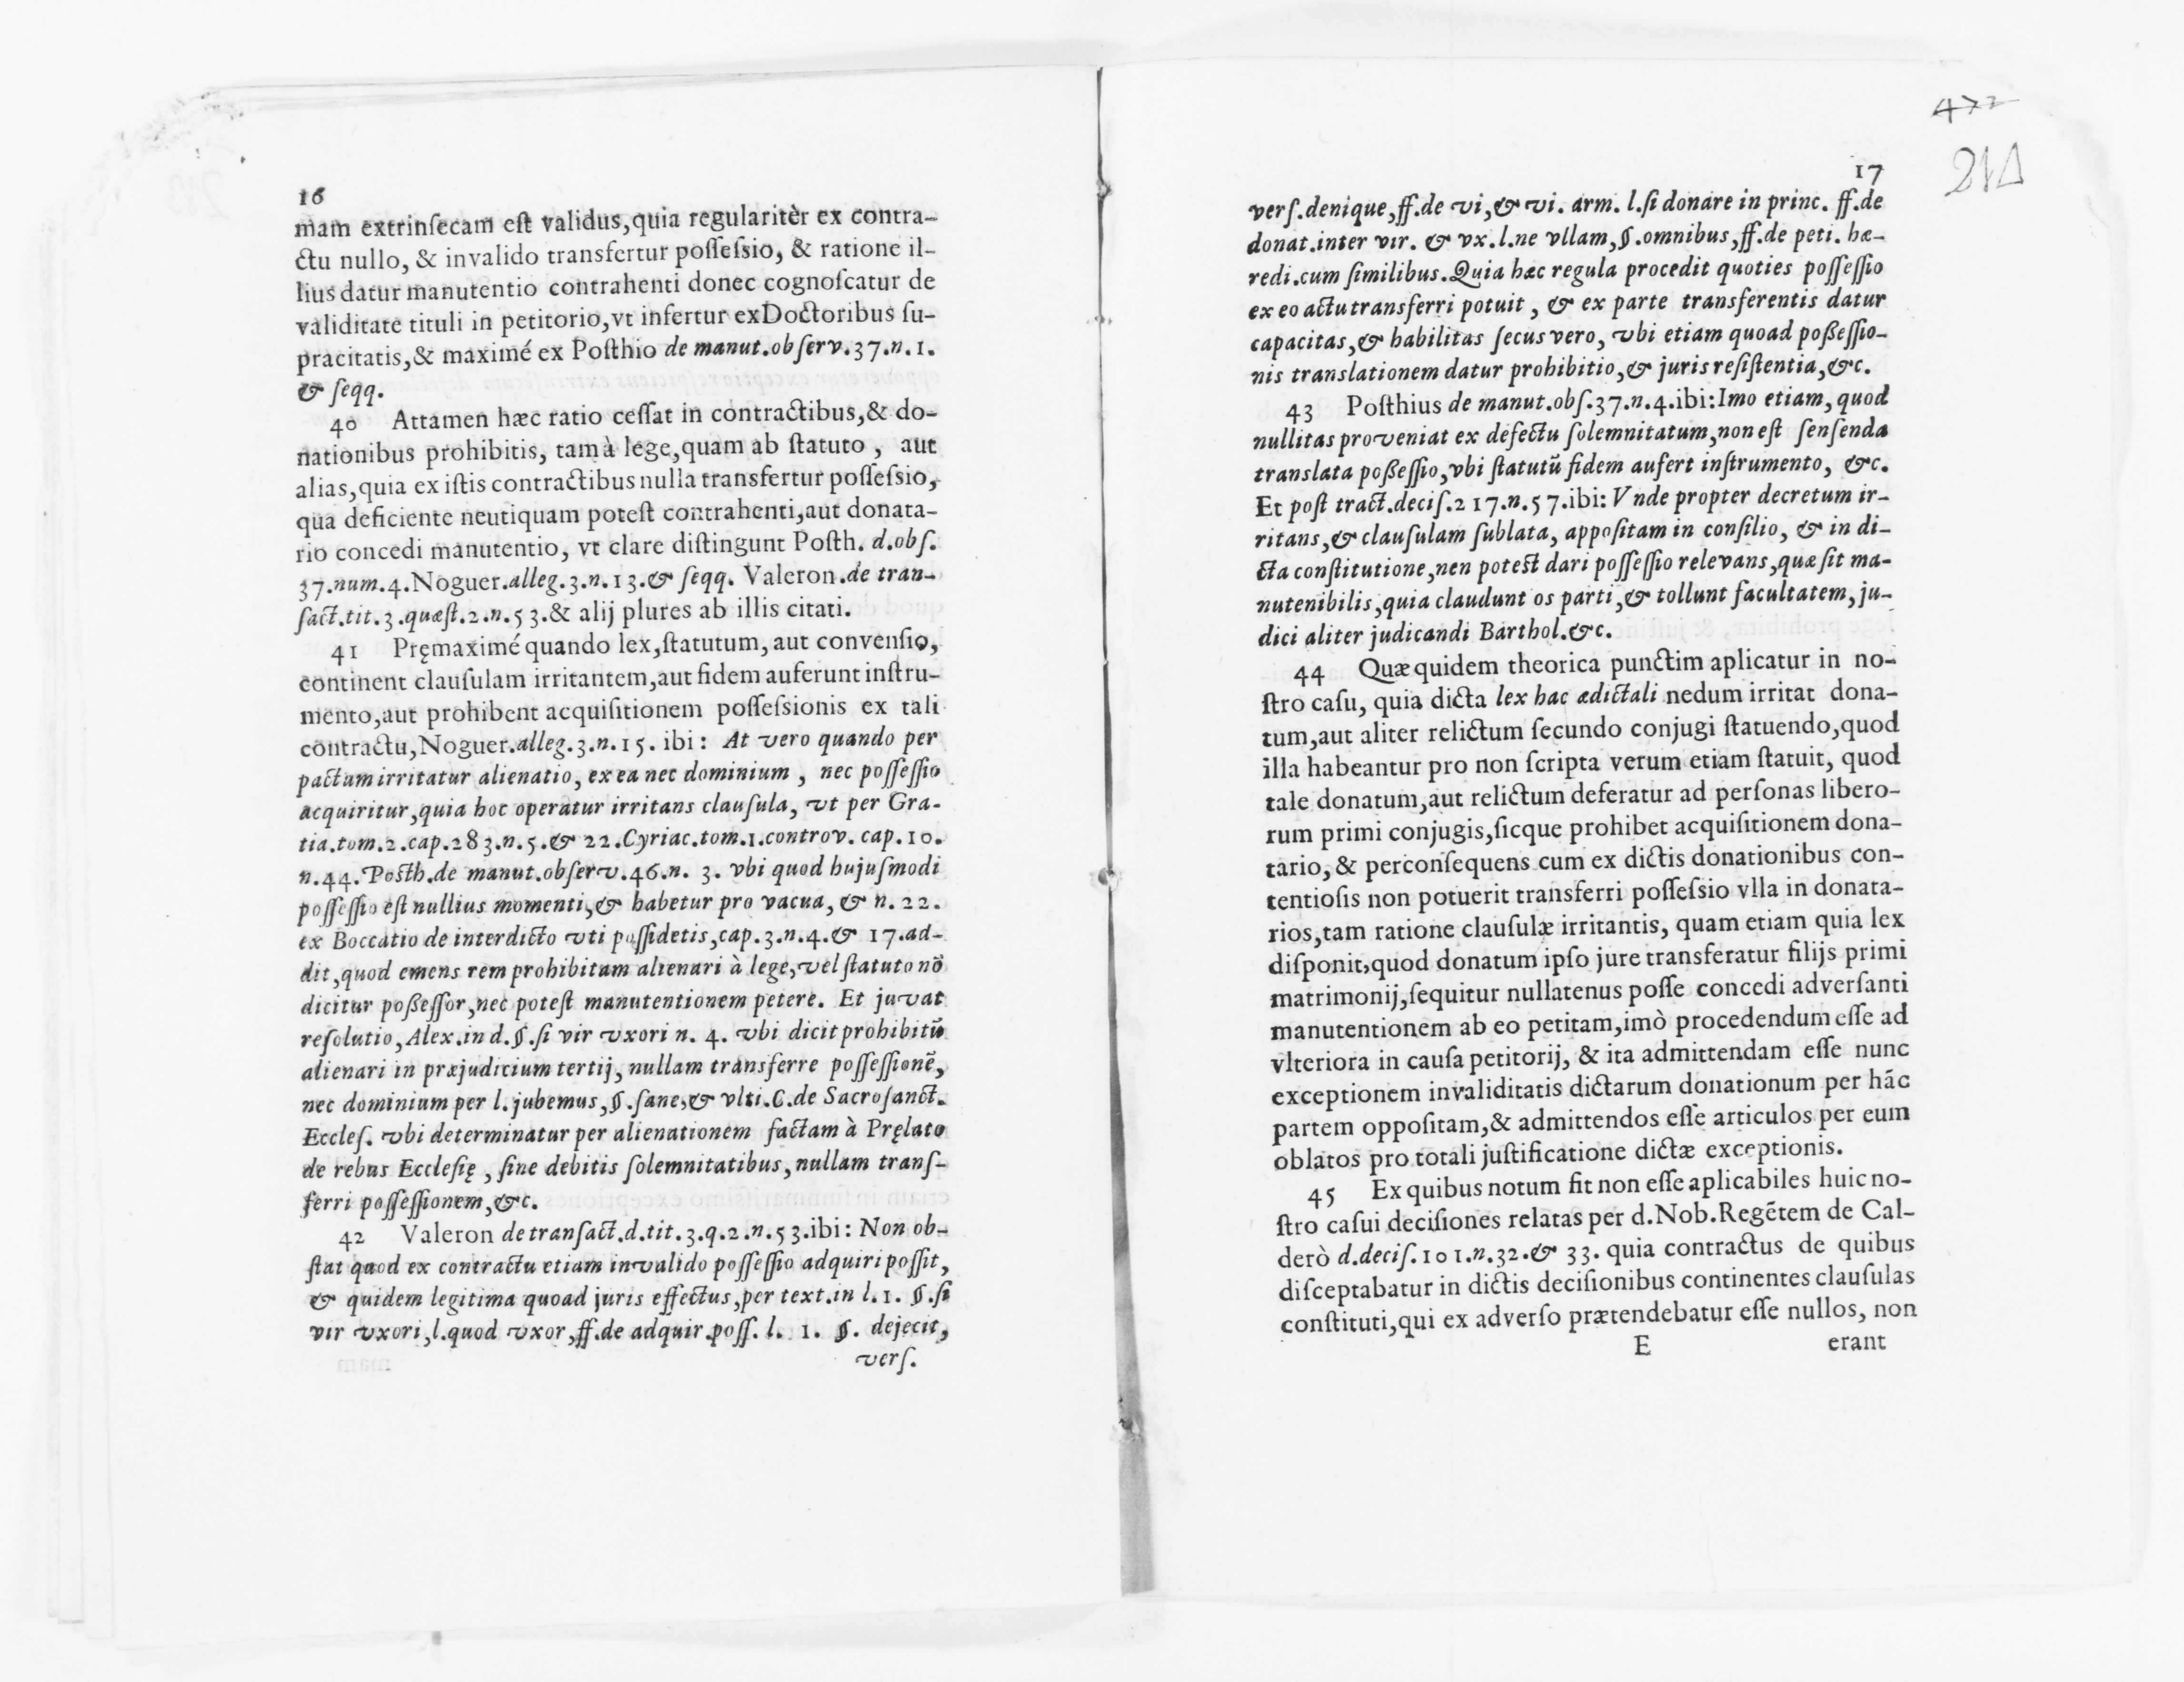 16
mam extrinſecam eſt validus,quia regularitèr ex contra-
ctu nullo, & invalido transfertur poſſeſsio, & ratione il-
lius datur manutentio contrahenti donec cognoſcatur de
validitate tituli in petitorio,vt infertur exDoctoribus ſu-
pracitatis,& maximé ex Poſthio de manut.obſerv.37.n.1.
& ſeqq.
40 Attamen hæc ratio ceſſat in contractibus,& do-
nationibus prohibitis, tam à lege,quam ab ſtatuto , aut
alias,quia ex iſtis contractibus nulla transfertur poſſeſsio,
qua deficiente neutiquam poteſt contrahenti,aut donata-
rio concedi manutentio, vt clare diſtingunt Poſth. d.obſ.
37.num.4.Noguer.alleg.3.n.13.& ſeqq. Valeron.de tran-
ſact.tit.3.quæſt.2.n.53.& alij plures ab illis citati.
41 Pręmaximé quando lex,ſtatutum, aut convenſio,
continent clauſulam irritantem,aut fidem auferunt inſtru-
mento,aut prohibent acquiſitionem poſſeſsionis ex tali
contractu,Noguer.alleg.3.n.15. ibi: At vero quando per
pactum irritatur alienatio, ex ea nec dominium , nec poſſeſſio
acquiritur,quia hoc operatur irritans clauſula, vt per Gra-
tia.tom.2.cap.283.n.5.& 22.Cyriac.tom.1.controv. cap.10.
n.44.Poſth.de manut.obſerv.46.n. 3. vbi quod hujuſmodi
poſſeſſio eſt nullius momenti,& habetur pro vacua, & n.22.
ex Boccatio de interdicto vti poſſidetis,cap.3.n.4.& 17.ad-
dit,quod emens rem prohibitam alienari à lege,vel ſtatuto nō
dicitur poßeſſor,nec poteſt manutentionem petere. Et juvat
reſolutio, Alex.in d.§.ſi vir vxori n. 4. vbi dicit prohibitū
alienari in præjudicium tertij, nullam transferre poſſeſſionē,
nec dominium per l. jubemus, §.ſane,& vlti.C.de Sacroſanct.
Eccleſ. vbi determinatur per alienationem factam à Pręlato
de rebus Eccleſię , ſine debitis ſolemnitatibus, nullam tranſ-
ferri poſſeſſionem,&c.
42 Valeron de tranſact.d.tit.3.q.2.n.53.ibi: Non ob-
ſtat quod ex contractu etiam invalido poſſeſſio adquiri poſſit,
& quidem legitima quoad juris effectus,per text.in l.1. §.ſi
vir vxori,l.quod vxor,ff.de adquir.poſſ. l. 1. §. dejecit,
verſ.
472
214
17
verſ.denique,ff.de vi,& vi. arm. l.ſi donare in princ. ff.de
donat.inter vir. & vx.l.ne vllam,§.omnibus,ff.de peti. hæ-
redi.cum ſimilibus.Quia hæc regula procedit quoties poſſeſſio
ex eo actu transferri potuit , & ex parte transferentis datur
capacitas,& habilitas ſecus vero, vbi etiam quoad poßeſſio-
nis translationem datur prohibitio,& juris reſiſtentia,&c.
43 Poſthius de manut.obſ.37.n.4.ibi:Imo etiam, quod
nullitas proveniat ex defectu ſolemnitatum,non eſt ſenſenda
translata poßeſſio,vbi ſtatutū fidem aufert inſtrumento, &c.
Et poſt tract.deciſ.217.n.57.ibi: Vnde propter decretum ir-
ritans,& clauſulam ſublata, appoſitam in conſilio, & in di-
cta conſtitutione,nen poteſt dari poſſeſſio relevans,quæ ſit ma-
nutenibilis,quia claudunt os parti,& tollunt facultatem, ju-
dici aliter judicandi Barthol.&c.
44 Quæ quidem theorica punctim aplicatur in no-
ſtro caſu, quia dicta lex hac ædictali nedum irritat dona-
tum,aut aliter relictum ſecundo conjugi ſtatuendo,quod
illa habeantur pro non ſcripta verum etiam ſtatuit, quod
tale donatum,aut relictum deferatur ad perſonas libero-
rum primi conjugis,ſicque prohibet acquiſitionem dona-
tario, & perconſequens cum ex dictis donationibus con-
tentioſis non potuerit transferri poſſeſsio vlla in donata-
rios,tam ratione clauſulæ irritantis, quam etiam quia lex
diſponit,quod donatum ipſo jure transferatur filijs primi
matrimonij,ſequitur nullatenus poſſe concedi adverſanti
manutentionem ab eo petitam,imò procedendum eſſe ad
vlteriora in cauſa petitorij, & ita admittendam eſſe nunc
exceptionem invaliditatis dictarum donationum per hāc
partem oppoſitam,& admittendos eſſe articulos per eum
oblatos pro totali juſtificatione dictæ exceptionis.
45 Ex quibus notum fit non eſſe aplicabiles huic no-
ſtro caſui deciſiones relatas per d.Nob.Regētem de Cal-
derò d.deciſ.101.n.32.& 33. quia contractus de quibus
diſceptabatur in dictis deciſionibus continentes clauſulas
conſtituti,qui ex adverſo prætendebatur eſſe nullos, non
E erant